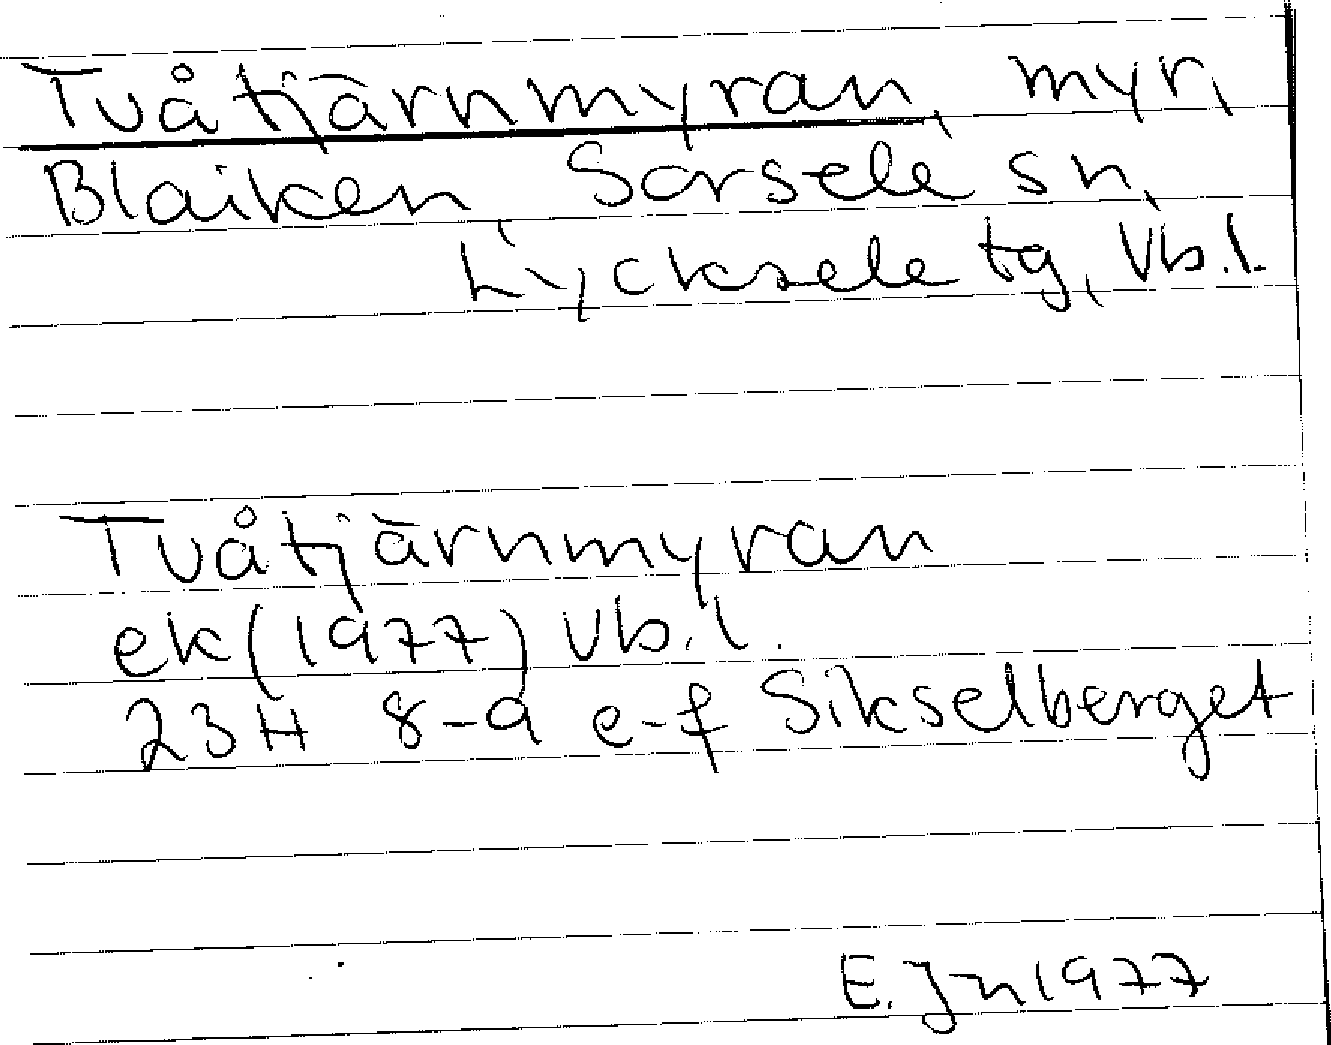 Tvåtjärnmyran, myr,
Blaiken, Sorsele sn,
Lycksele tg, Vb.l.
Tvåtjärnmyran
ek (1977) Vb.l.
23H 8-9 e-f Sikselberget
E. Jn 1977